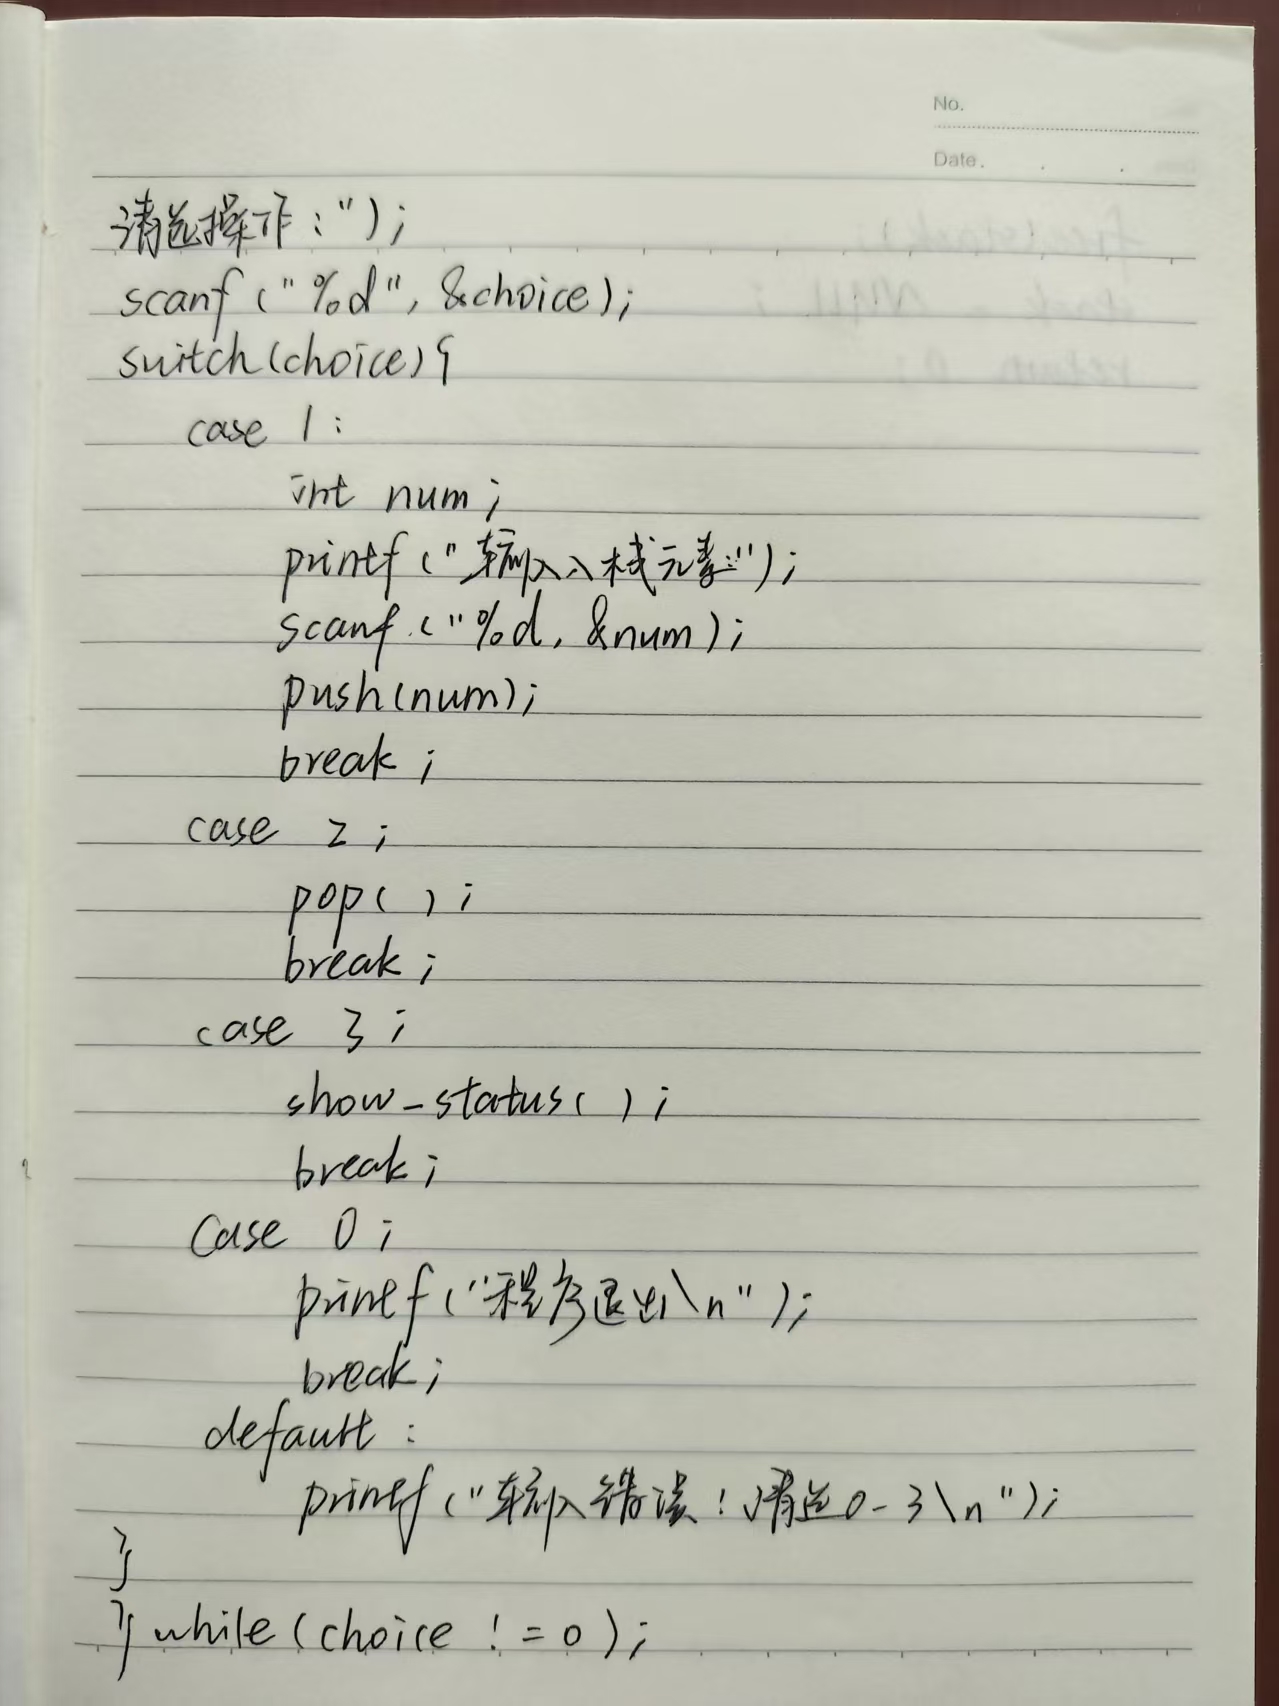 No.
Date.
请选操作:");
scanf("%d", &choice);
switch(choice){
case 1:
int num;
printf("输入入栈元素:");
scanf("%d, &num);
push(num);
break;
case 2;
pop( );
break;
case 3;
show_status( );
break;
Case 0;
printf("程序退出\n");
break;
default:
printf("输入错误!请选0-3\n");
}
} while(choice != 0);